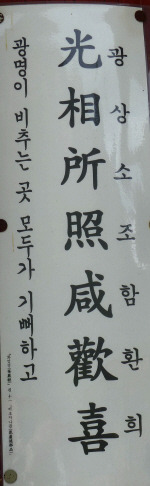 光相所照咸歡喜
광상소조함환희
광명이 비추는 곳 모두가 기뻐하고